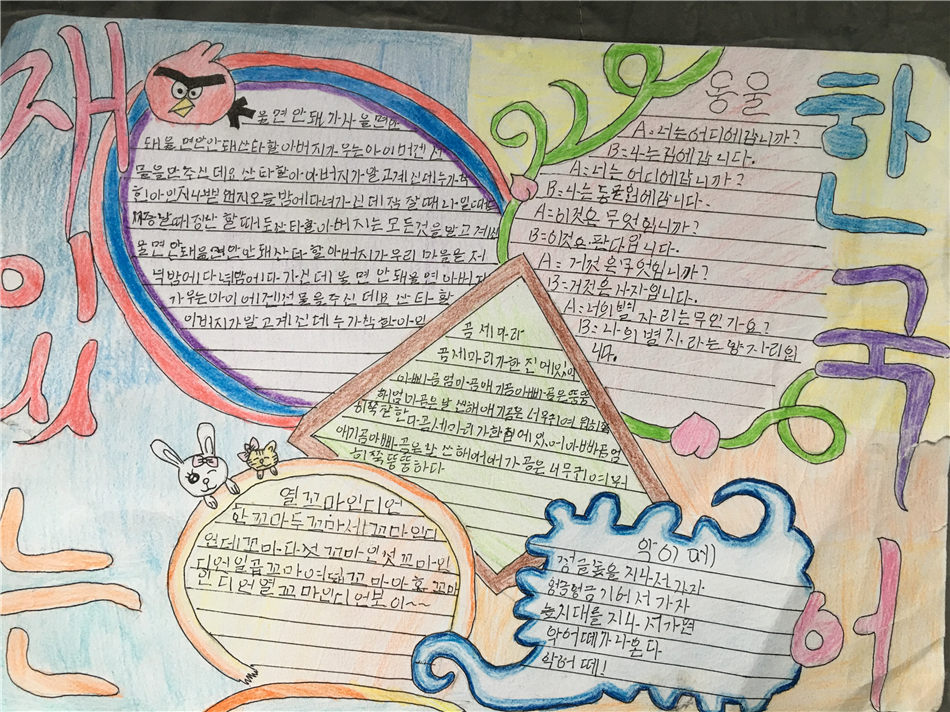 재
밌
는
한
국
어
울면안돼가사울면안
돼울면안안돼산타할아버지가우는아이에겐서
물을안주신데요산타할아버지가알고계신데누가착
한아인지나쁜앤지오늘밤에다녀가신데잠잘때나일때
장난할때도산타할아버지는모든것을알고계신
울면안돼울면안안돼산타할아버지가우리마을은저
녁밤에다녀가신데울면안돼울면아버지
가우는아이에겐선물을주신데요산타할
아버지가알고계신데누가착한아인
동물
A=너는어디에갑니까?
B=나는집에갑니다.
A=너는어디에갑니까?
B=나는동물원에갑니다.
A=이것은무엇입니까?
B=이것은판다입니다.
A=거것은무엇입니까?
B=거것은사자입니다.
A=너의별자리는무인가요?
B=나의별자라는양자리입
니다.
곰세마리
곰세마리가한진에있어
아빠곰엄마곰애기곰아빠곰은뚱뚱
해엄마곰은날씬해애기곰은너무귀여워
히쭉한다곰세마리가한집에있어아빠곰엄
애기곰아빠곰은날씬해애기곰은너무귀여워
히쭉뚱뚱하다
열꼬마인디언
한꼬마두꼬마세꼬마인디
언네꼬마다섯꼬마인섯꼬마인
디언일곱꼬마여덟꼬마아홉꼬마
인디언열꼬마인디언보이~~
악어떼
정글숲을지나서가자
엉금엉금기어서가자
늪지대를지나서가면
악어떼가나온다
악어떼!